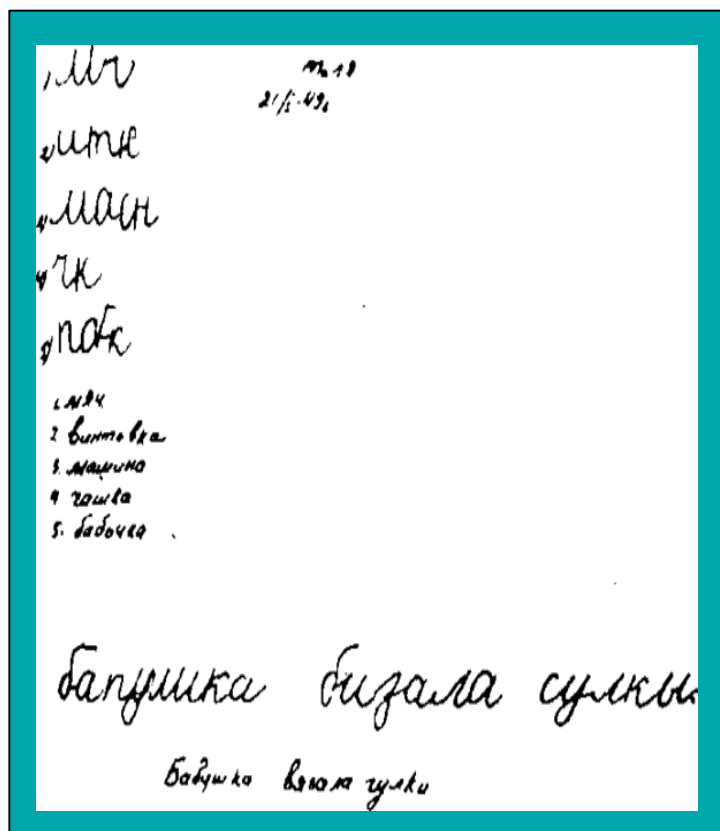 1, мч
2, итк
3, масн
4, чк
5, побк
1. мяч
2 винтовка
3. машина
4 чашка
5. бабочка
бапушка бизала сулкы
Бабушка вязала чулки